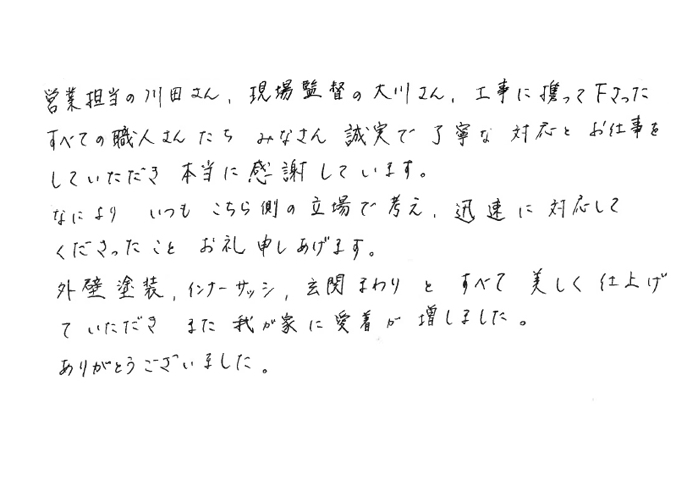 営業担当の川田さん、現場監督の大川さん、工事に携って下さった
すべての職人さんたち みなさん 誠実で 丁寧な 対応と お仕事を
していただき 本当に 感謝しています。
なにより いつも こちら側の 立場で 考え、迅速に 対応して
くださったこと お礼 申しあげます。
外壁 塗装、インナーサッシ、玄関まわり と すべて 美しく 仕上げ
て いただき また 我が家に 愛着が 増しました。
ありがとうございました。